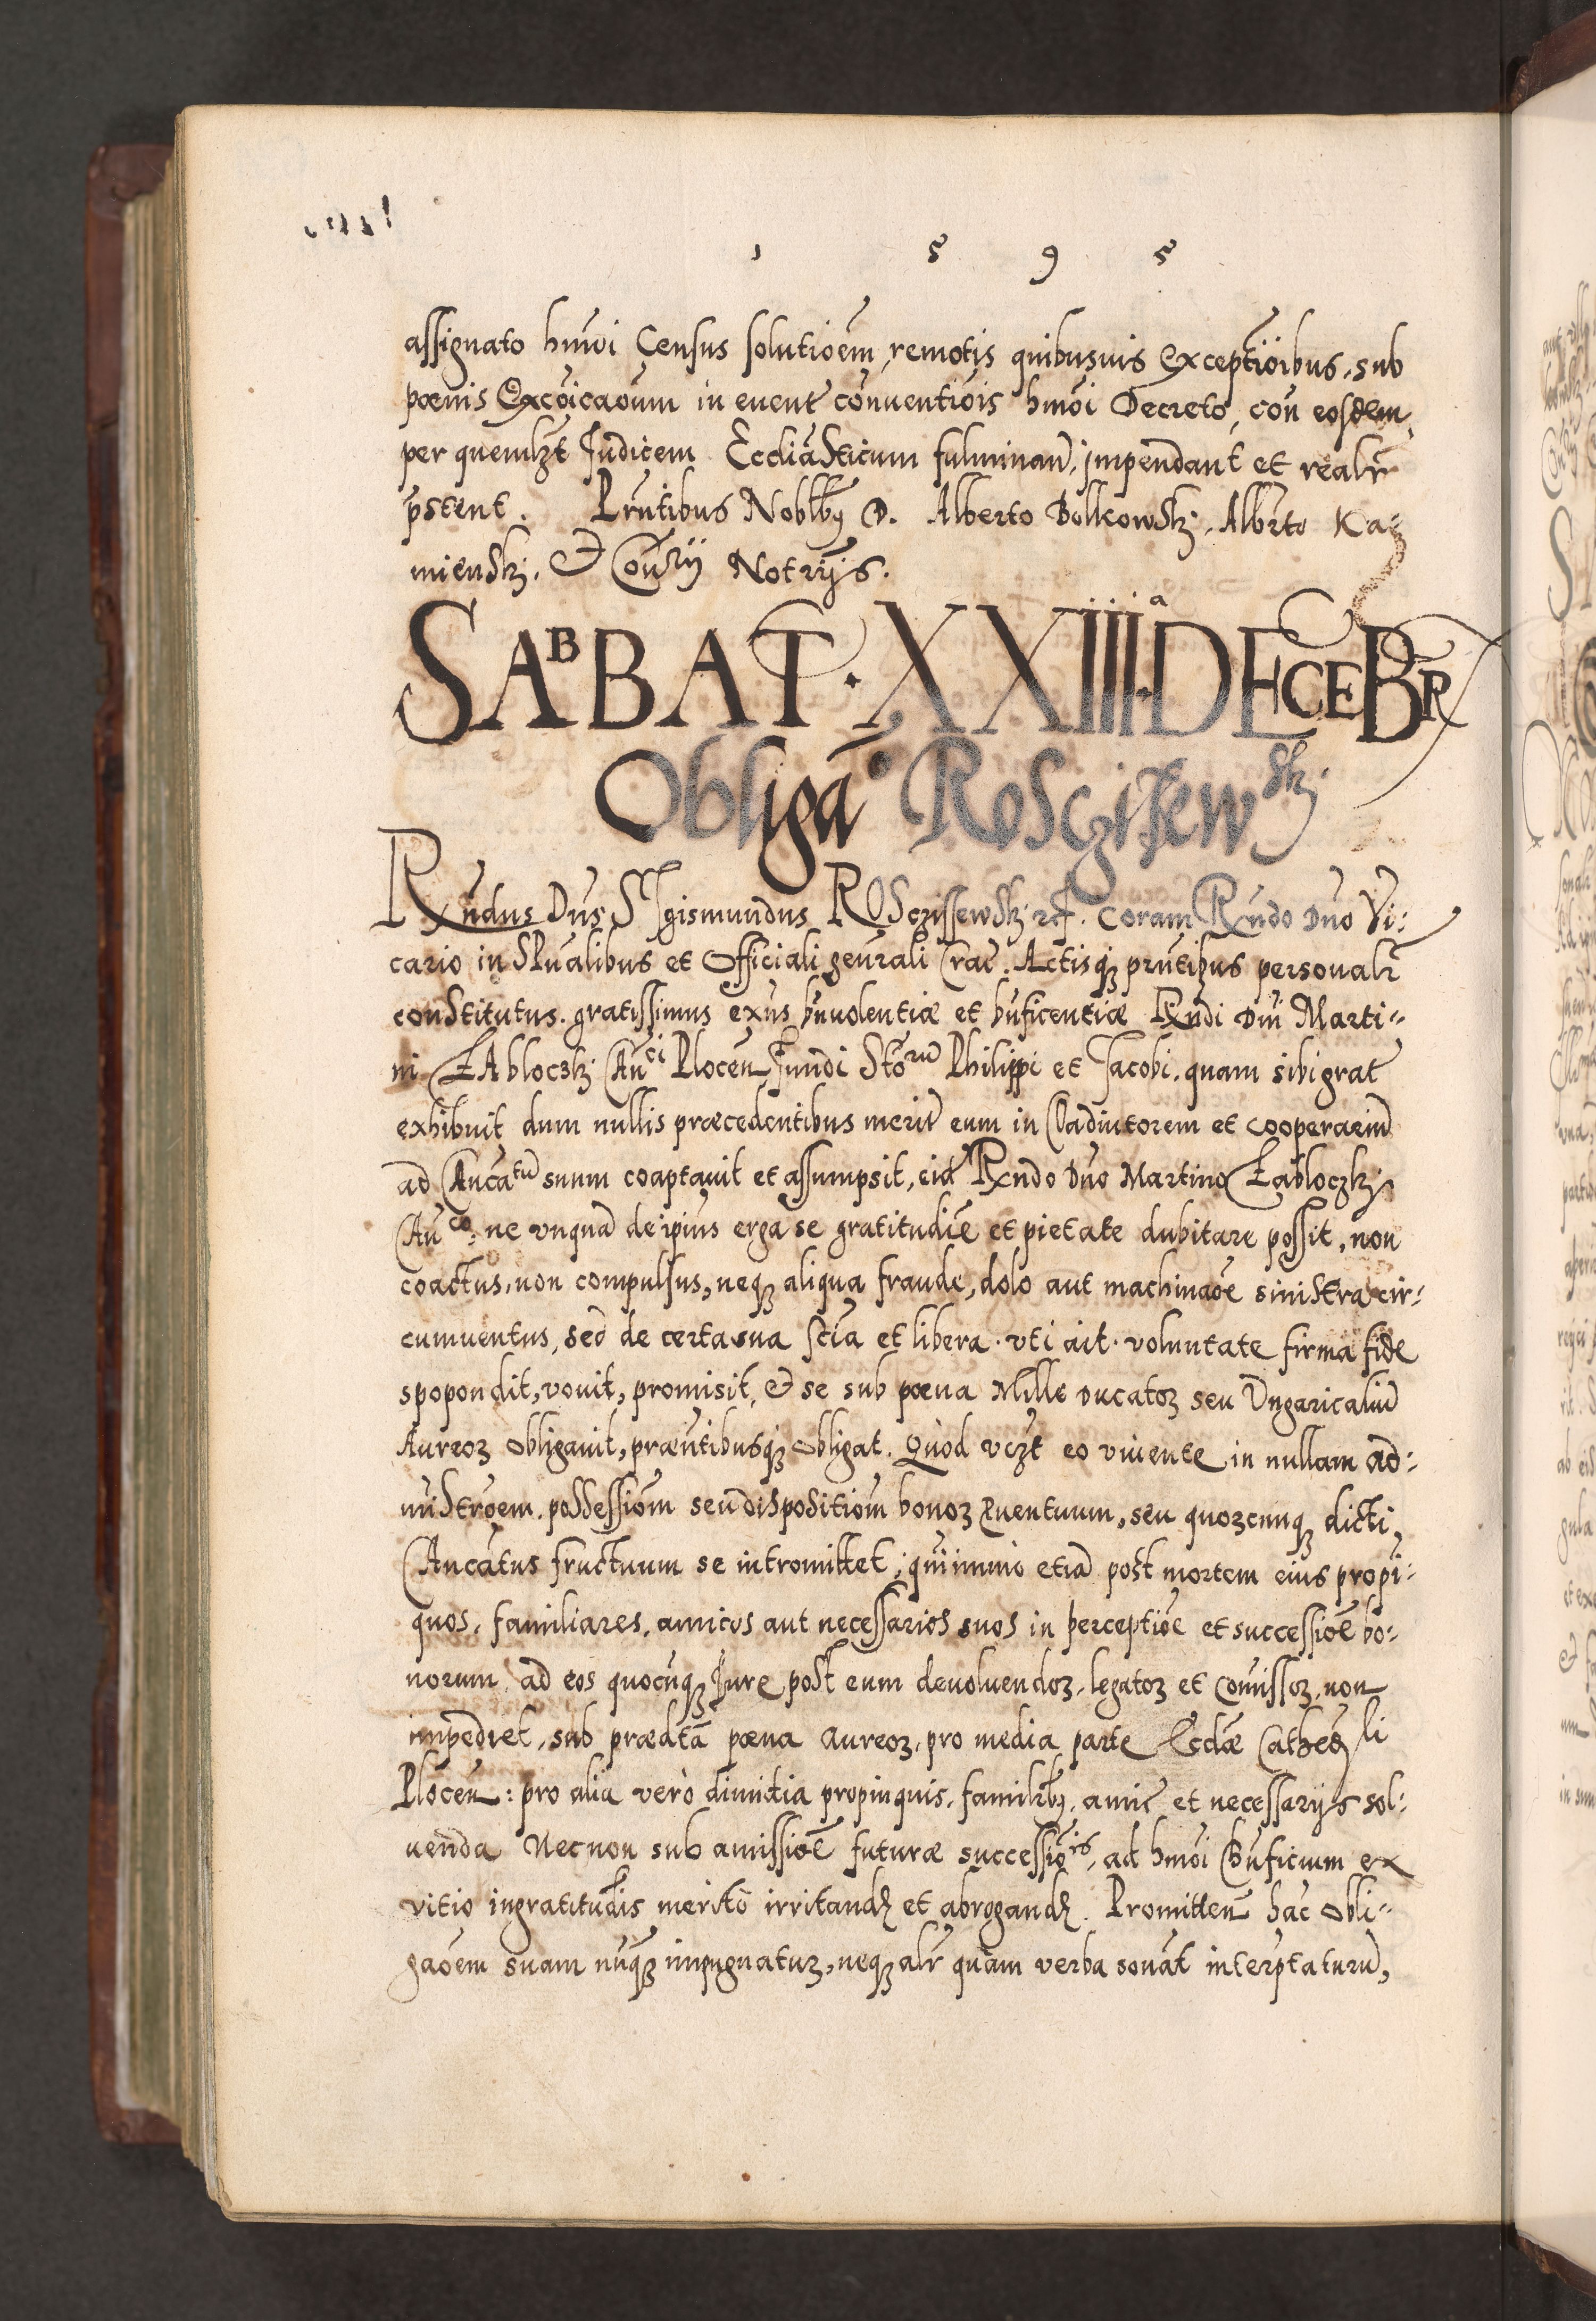 1 5 9 5
assignato hmōi Census solutiōem, remotis quibusuis exceptiōibus, sub
pœnis Excōicaōum in euent conuentiōis hmōi Decreto, con eosdem
per quemlzt Judicem Eccliāsticum fulminan̄, impendant et realr̄
p̄stent. Prn̄tibus Noblb9 D. Alberto Bolkowsk, Albr̄to Ka=
miensk, & Notrijs.
SABBAT · XXIIIIᵃ · DECEBR
Obligaº Rosczissewsk
Rxn̄dus Dn̄s SIgismundus ROSczissewsk, coram Rxn̄do Dn̄o Vi:
cario in SPūalibus et Officiali gen̄rali Crac̄. Actisq3 prn̄tibus personalr̄
constitutus. gratissimus bn̄uolentiæ et bn̄ficentiæ Rxn̄di Dn̄i Marti=
ni ZAbloczk Can̄ci Plocen̄ fundi Stōrū Philippi et Jacobi, quam sibi grat
exhibuit dum nullis præcedentibus merit eum in Coadiutorem et cooperarium
ad Can̄catū suum coaptauit et assumpsit, eid Rxn̄do Dn̄o Martino Zabloczk
Can̄co, ne vnquā de ipius erga se gratitudīe et pietate dubitare possit, non
coactus, non compulsus, neq3 aliqua fraude, dolo aut machinaōe sinistra cir=
cumuentus, sed de certa sua scīa et libera · vti ait · voluntate firma fide
spopondit, vouit, promisit, & se sub pœna Mille Ducatoꝝ seu Vngaricaliū
Aureoꝝ obligauit, præn̄tibusq3 obligat. Quòd vczt eo viuente in nullam ad=
mīstrōem, possessiōm seu dispositiōm bonoꝝ puentuum, seu quoꝝcunq3 dicti
Can̄catus fructuum se intromittet, quīimmò etiā post mortem eius propī=
quos, familiares, amicos aut necessarios suos in perceptiōe et successiōe bo=
norum ad eos quocūq3 Jure post eum deuoluendoꝝ, legatoꝝ et comissoꝝ, non
impediet, sub prædtā pœna aureoꝝ, pro media parte Eccl̄æ Cathedli
Plocen̄: pro alia verò dimidia propinquis, familrb9, amic̄ et necessarijs sol=
uenda Necnon sub amissiōe futuræ successiōis, ad hmōi Bn̄ficium ex
vitio ingratitudīs meritò irritandꝭ et abrogandꝭ. Promitten̄ hac obli=
gaōem suam nūq3 impugnatuꝝ, neq3 alr̄ quàm verba sonāt interp̄taturū,